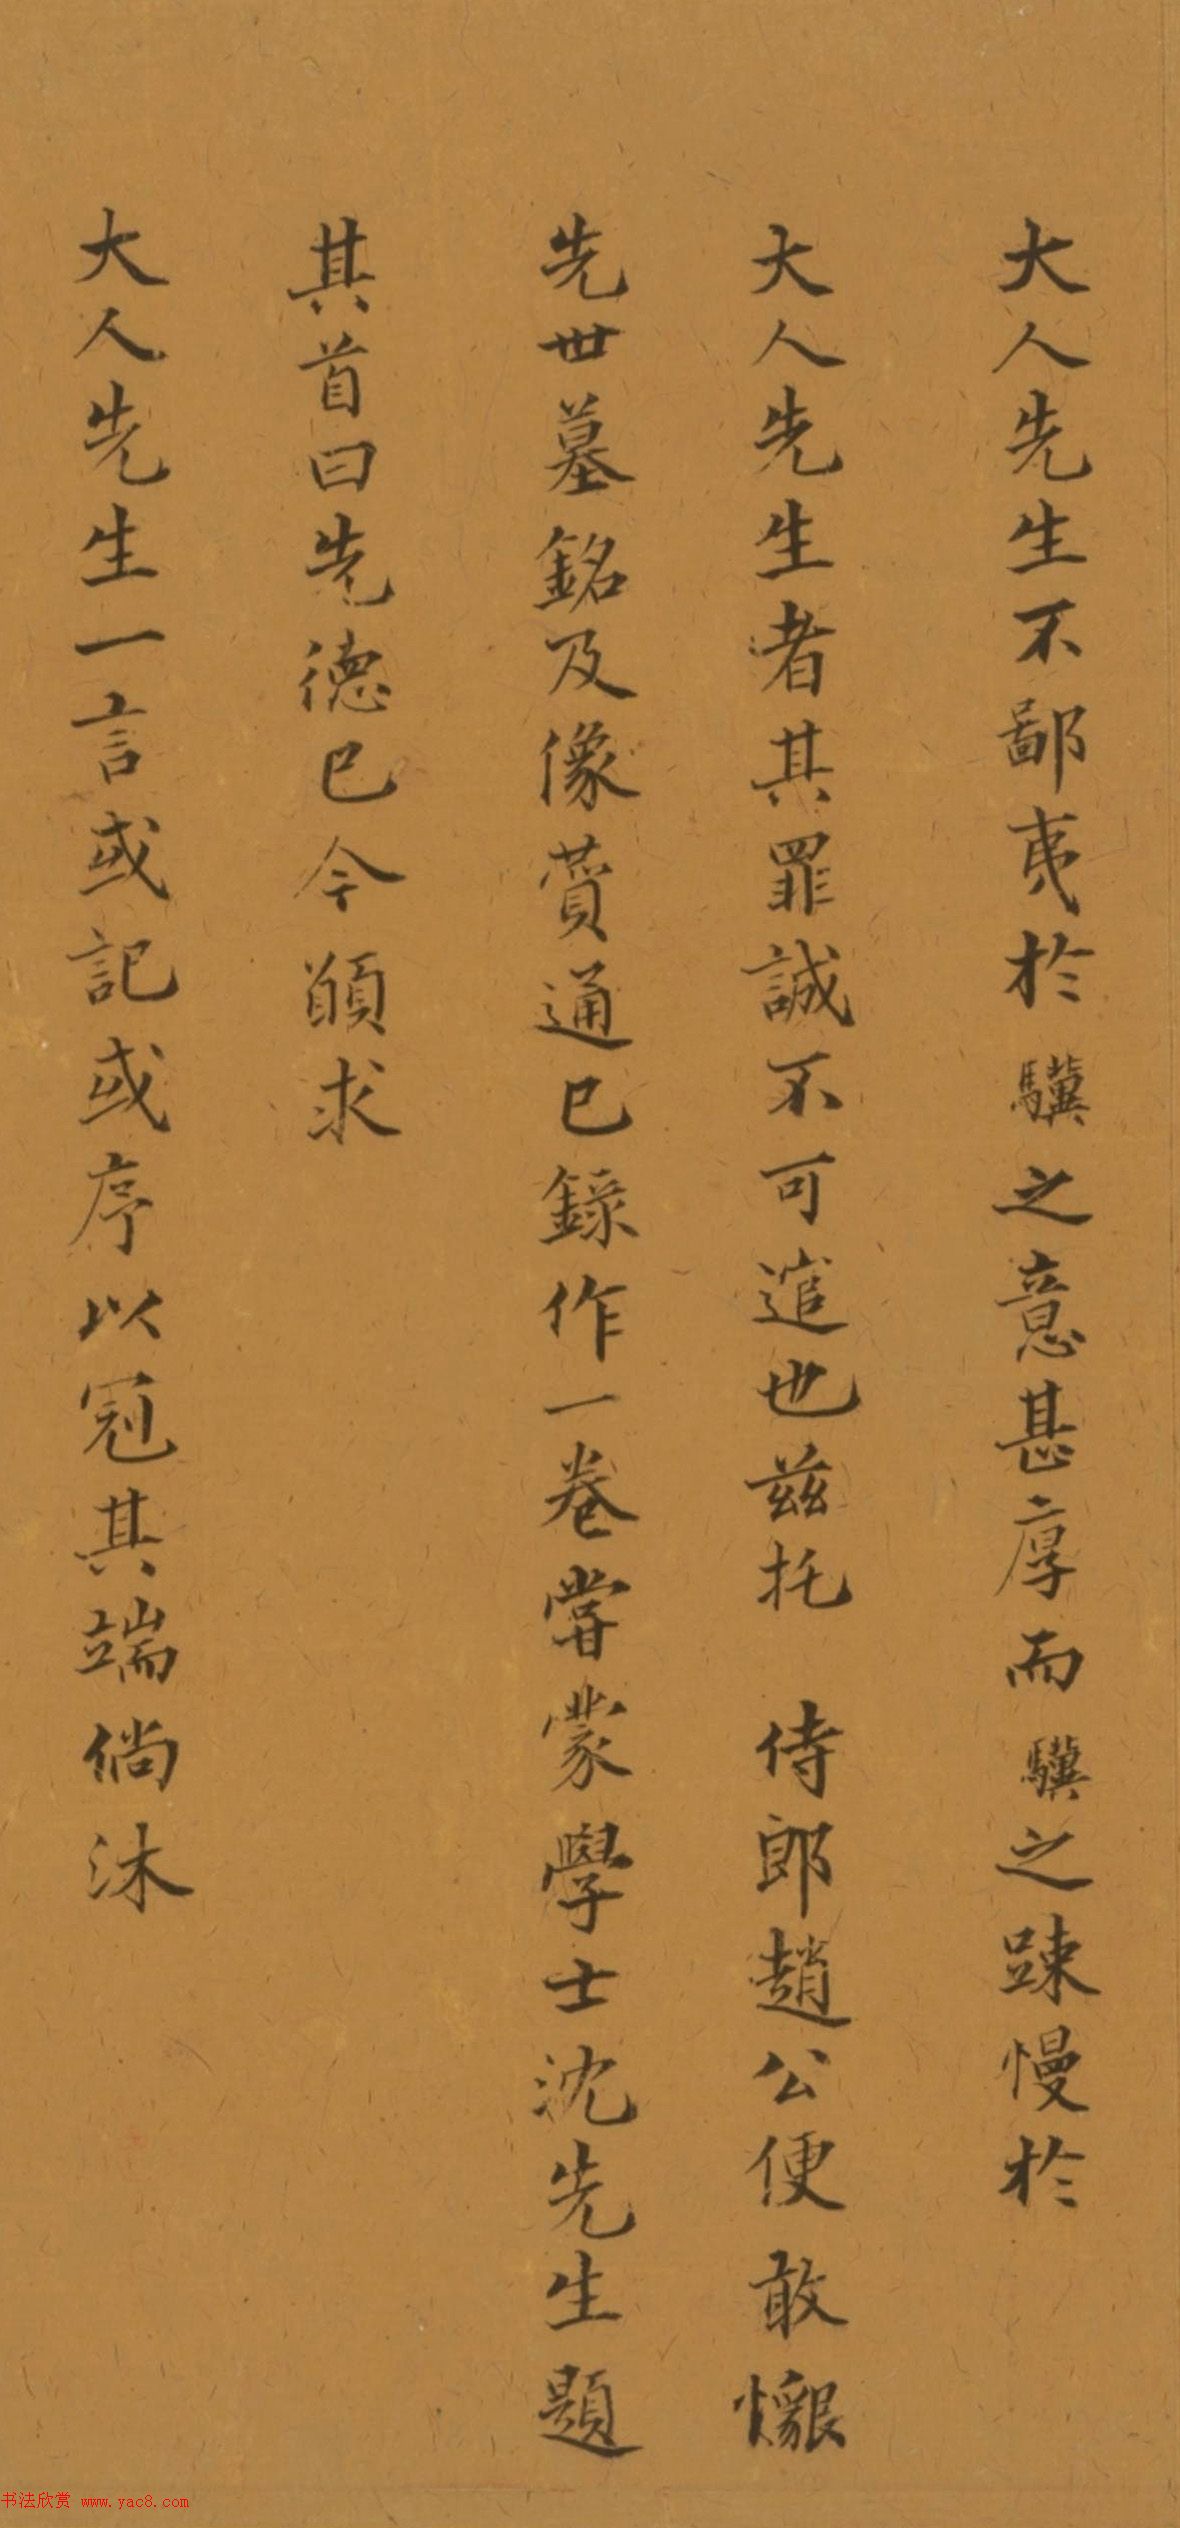 大人先生不鄙夷於驥之意甚厚而驥之踈慢於
大人先生者其罪誠不可逭也兹托 侍郎趙公便敢懇
先世墓銘及像賛通已錄作一卷嘗蒙學士沈先生題
其首曰先德已今願求
大人先生一言或記或序以冠其端倘沐
书法欣赏 www.yac8.com